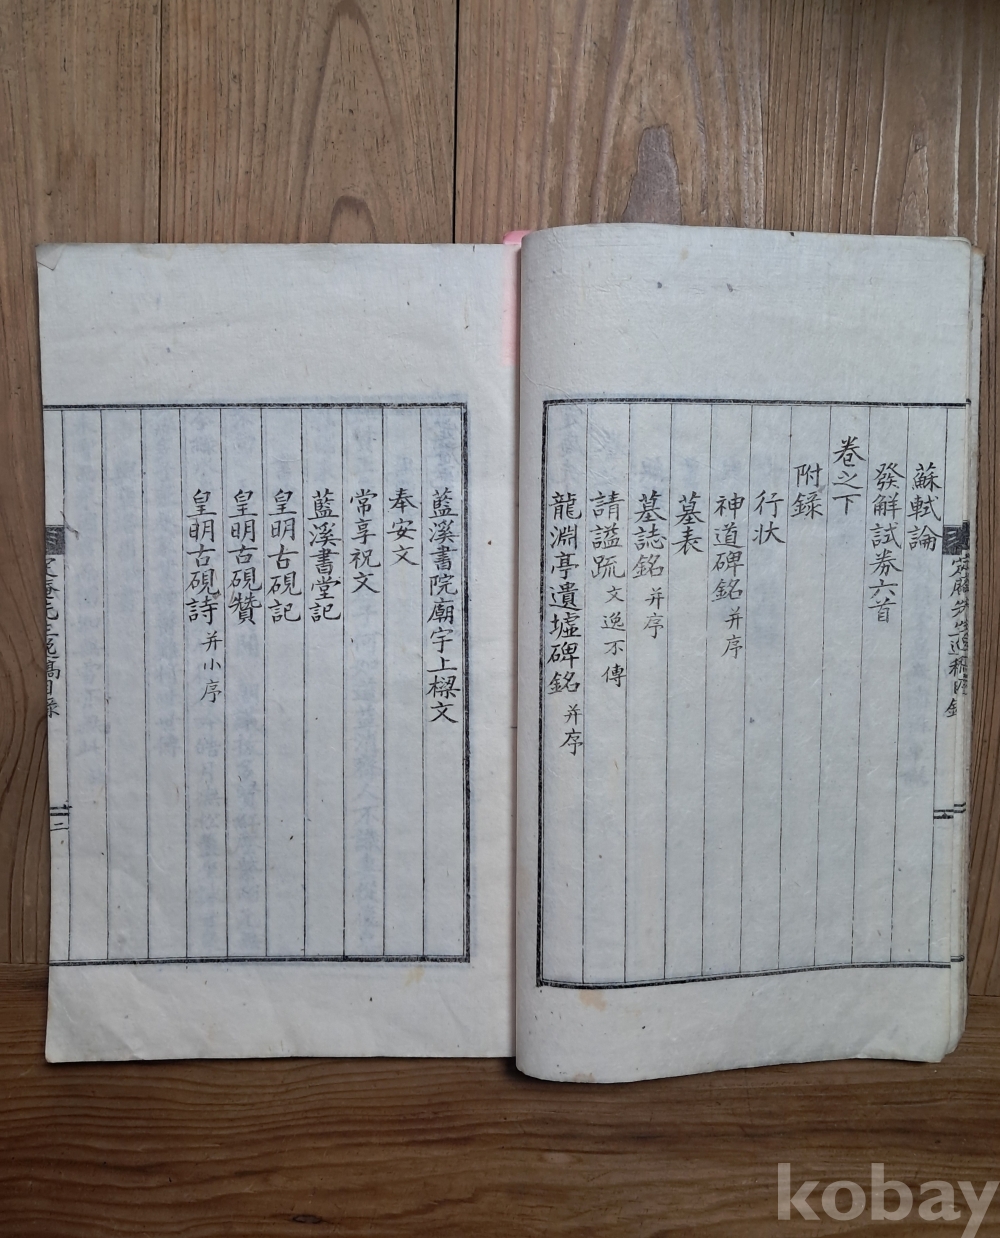 蘇軾論
發解試券六首
卷之下
附錄
行狀
神道碑銘 并序
墓表
墓誌銘 并序
請諡疏 文逸不傳
龍淵亭遺墟碑銘 并序
藍溪書院廟宇上樑文
奉安文
常享祝文
藍溪書堂記
皇明古硯記
皇明古硯贊
皇明古硯詩 并小序
二
kobay